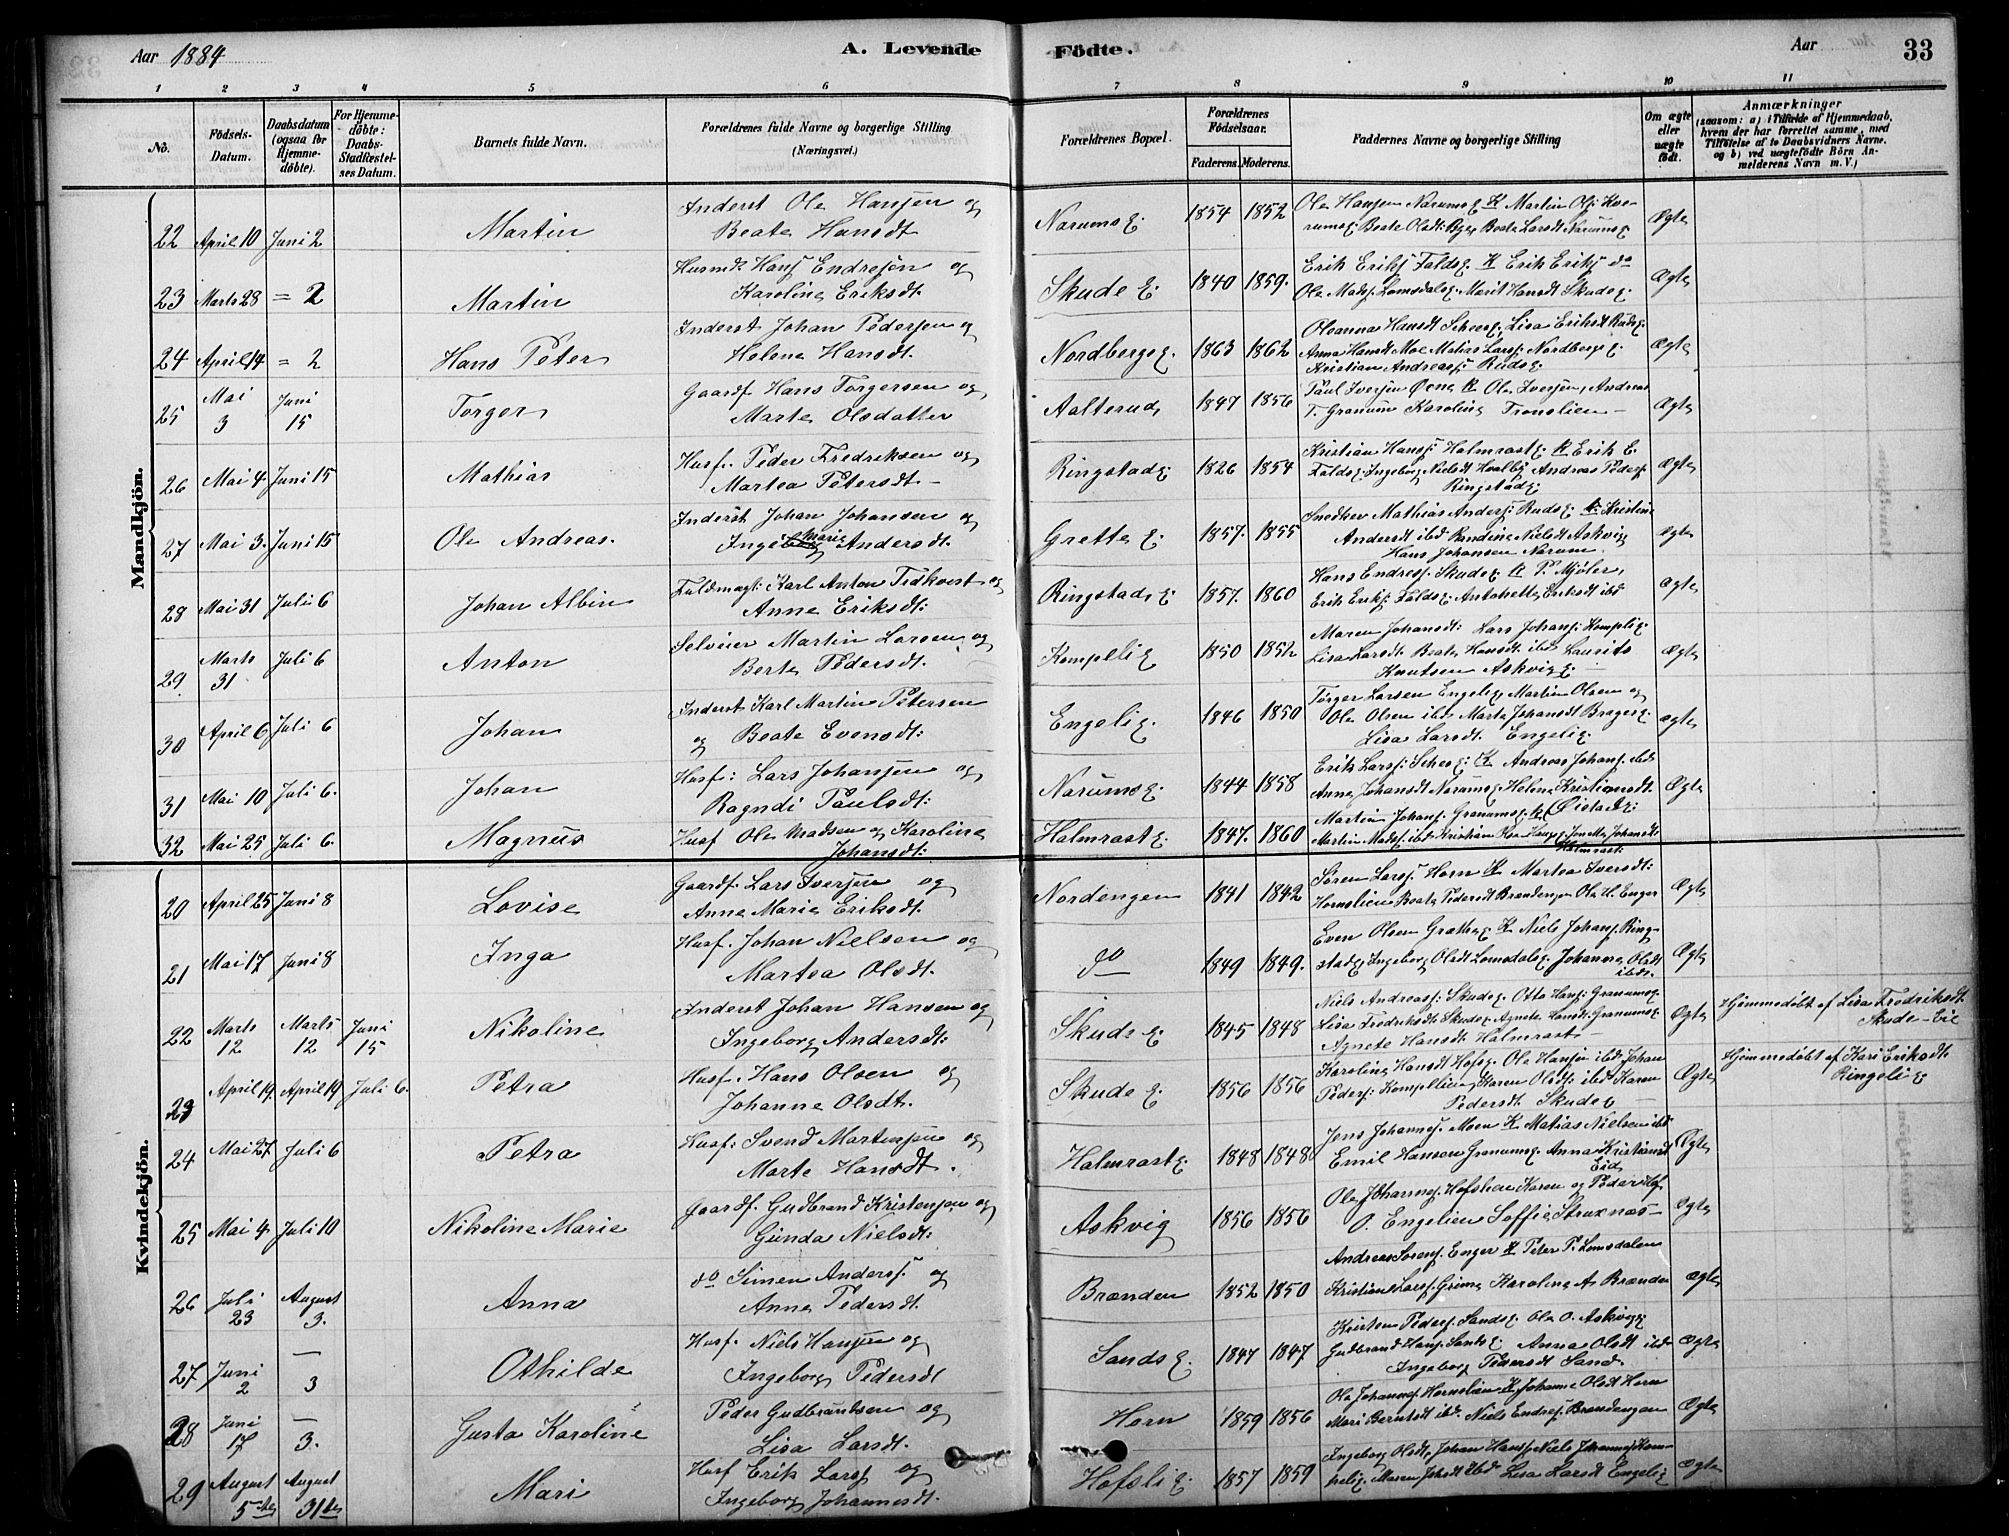 Aar 1884
A. Levende
Födte.
Aar
33
1 2 3 4 5 6 7 8 9 10 11
No.
Födsels-Datum.
Daabsdatum (ogsaa for Hjemme-döbte).
For Hjemme-döbte: Daabs-Stadfæstel-ses Datum.
Barnets fulde Navn.
Forældrenes fulde Navne og borgerlige Stilling
(Næringsvei.)
Forældrenes Bopæl.
Forældrenes Födselsaar.
Faderens. Moderens.
Faddernes Navne og borgerlige Stilling
Om ægte eller uægte födt.
Anmærkninger
(saasom: a) i Tilfælde af Hjemmedaab,
hvem der har forrettet samme, med
Tilföielse af to Daabsvidners Navne.
og b) ved uægtefödte Börn An-
melderens Navn m. V.)
Mandkjön.
22 April 10 Juni 2 Martin Inderst Ole Hansen og
Beate Hansdt Narumsg. 1854 1852 Ole Hansen Narumsg K Martin Ols
Beate Olsdt Beate Larsdt Narumsg Ægte
23 Marts 28 = 2 Martin Husmd. Hans Endresön og
Karoline Eriksdt. Skude g. 1840 1859. Erik Eriks Faldsg. K Erik Eriks do
Ole Mads. Lomsdalsg. Marit Hansdt Skudeg. Ægte
24 April 14 = 2 Hans Peter Inderst Johan Pedersen og
Helene Hansdt. Nordbergsg. 1863 1862 Oleanna Hansdt Lisa Eriksdt Rudsg.
Anna Hansdt Moe Matias Lars. Nordbergsg.
Kristian Andreass. Rudsg. Ægte
25 Mai 3 Juni 15 Torger Gaardf. Hans Torgersen og
Marte Olsdatter Aalterud 1847 1856 Paul Iversen K Ole Iversen, Andreas
T. Granum Karoline Tronslien Ægte
26 Mai 4 Juni 15 Mathias Husf. Peder Fredriksen og
Martea Petersdt. Ringstadg. 1826 1854 Kristian Hans. Halmrastg. K Erik E.
Faldsg. Ingeborg Nielsdt Hvalby Andreas Peders.
Ringstadg. Ægte
27 Mai 3. Juni 15 Ole Andreas. Inderst Johan Johansen og
Inge Marie Andersdt. Grette g. 1857. 1855 Snedker Mathias Anders. Rudsg. K Kristine
Andersdt ibd Randine Nielsdt Askvig
Hans Johansen Narum. Ægte
28 Mai 31 Juli 6 Johan Albin Fuldmægt: Karl Anton Tidkvist og
Anne Eriksdt: Ringstads g. 1857. 1860 Hans Endres. Skudeg K P. Mjöler,
Erik Eriks. Faldsg. Antonette Eriksdt ibd Ægte
29 Marts 31 Juli 6 Anton Selveier Martin Larsen og
Berte Pedersdt. Kompelig 1850 1852 Maren Johansdt: Lars Johans. Kompelig.
Lisa Larsdt Beate Hansdt ibd Laurits
Knutsen Askvigg. Ægte
30 April 6 Juli 6 Johan Inderst Karl Martin Petersen
og Beate Evensdt: Engelig. 1846 1850 Torger Larsen Engelig Martin Olsen og
Ole Olsen ibd Marte Johansdt Bragerg
Lisa Larsdt. Engelig. ægte
31 Mai 10 Juli 6. Johan Husf: Lars Johansen og
Ragndi Paulsdt: Narumsg. 1844 1858 Erik Lars. K Andreas Johans. ibd
Anne Johansdt Narumsg Helene Kristiansdt
Öistadg: Ægte
32 Mai 25 Juli 6. Magnus Husf Ole Madsen og Karoline
Johansdt: Halmrastg. 1847. 1860 Martin Johans. Granumsg. K
Martin Mads. ibd Kristian Jonette Johansdt
Halmrast: Ægte
Kvindekjön.
20 April 25 Juni 8 Lovise Gaardf. Lars Iversen og
Anne Marie Eriksdt. Nordengen 1841 1842 Sören Lars. Horn K Martea Iversdt:
Hornslien Beate Pedersdt Brændengen Ole H. Enger Ægte
21 Mai 17 Juni 8 Inga Husf. Johan Nielsen og
Martea Olsdt. do 1849 1849. Even Olsen K Niels Johans. Ring-
stadg Ingeborg Olsdt Lomsdalsg. Johanne Olsdt
ibdt. Ægte
22 Marts 12 Marts 12 Juni 15 Nikoline Inderst Johan Hansen og
Ingeborg Andersdt: Skude g 1845 1848 Niels Andreas: Skudeg. Otto Hans: Granumsg.
Lisa Fredriksdt Skudeg. Agnete Hansdt: Granumsg
Agnete Hansdt Halmrast Ægte Hjemmedöbt af Lisa Fredriksdt.
Skude-Eie
23 April 19. April 19 Juli 6. Petra Husf. Hans Olsen og
Johanne Olsdt. Skude g. 1856 1856 Karoline Hansdt Hofsg. Ole Hansen ibd Johan
Peders: Kompelien Karen Olsdt: ibd Karen
Pedersdt Skudeg Ægte Hjemmedöbt af Kari Eriksdt.
Ringeli g
24 Mai 27 Juli 6 Petra Husf: Svend Martinsen og
Marte Hansdt. Halmrastg. 1848 1848 Jens Johannes. Moen K Matias Nielsen ibd
Emil Hansen Granumsg Anna Kristiansdt
Eid Ægte
25 Mai 4 Juli 10 Nikoline Marie Gaardf. Gudbrand Kristensen og
Gunda Nielsdt: Askvig 1856 1856 Ole Johannes. Hofslien Karen og Peder Hof
O. Engelien Soffie Struxnæs Ægte
26 Juli 23 August 3. Anna do Simen Anders. og
Anne Pedersdt. Brænden 1852 1850 Andreas Sörens. Enger K Peter P. Lomsdalen
Kristian Lars. Grime Karoline A. Brænden ægte
27 Juni 2 — 3 Othilde Husf. Niels Hansen og
Ingeborg Pedersdt Sandsg. 1847 1847 Kristen Peders. Sandsg. Ole O. Askvigg
Gudbrand Hans. Sandsg. Anna Olsdt ibd
Ingeborg Pedersdt Sand. Ægte
28 Juni 17 — 3. Gusta Karoline Peder Gudbrandsen og
Lisa Larsdt. Horn 1859 1856 Ole Johannes. Hornslien K Johanne Olsdt Horn
Mari Berntsdt ibd. Niels Endres. Brændengen Ægte
29 August 5te August 31te Mari Husf Erik Lars. og
Ingeborg Johannesdt. Hofslig. 1857 1859 Ingeborg Olsdt, Johan Hans. Niels Johannes Kom-
pelig. Maren Johsdt ibd Lisa Larsdt Engelig Ægte